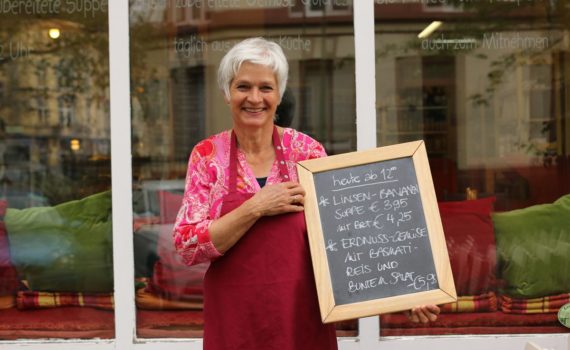 zubereitete Suppe
täglich aus Küche
auch zum Mitnehmen
Uhr
heute ab 12⁰⁰
* LINSEN-BANANEN
SUPPE € 3,95
MIT BROT € 4,25
* ERDNUSS-GEMÜSE
MIT BASMATI-
REIS UND
BUNTEM SALAT